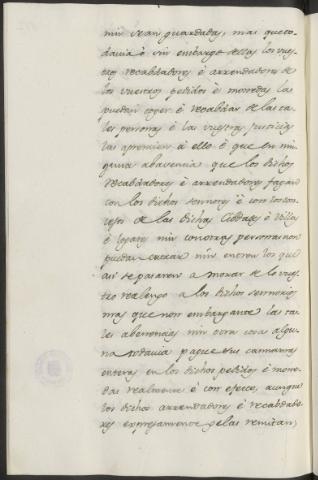 nin sean guardadas, mas que to-
davia è sin embargo dellas los vues-
tros recabdadores è arrendadores de
los vuestros pedidos è monedas las
puedan coger è recabdar de las ta-
les personas è las vuestras justicias
las apremien à ello è que en nin-
guna abenencia que los dichos
recabdadores è arrendadores fagan
con los dichos sennores è con los con-
cejos de las dichas Cibdades è Villas
è logares nin con otras personas non
puedan entrar nin entren los que
asi se pasaren à morar de lo vues-
tro realengo a los dichos sennorios
mas que non embargante las ta-
les abenencias nin otra cosa algu-
na todavia paguen
enteras en los dichos pedidos è mone-
das realmente è con efecto, aunque
los dichos arrendadores è recabdado-
res expresamente gelas remitan,